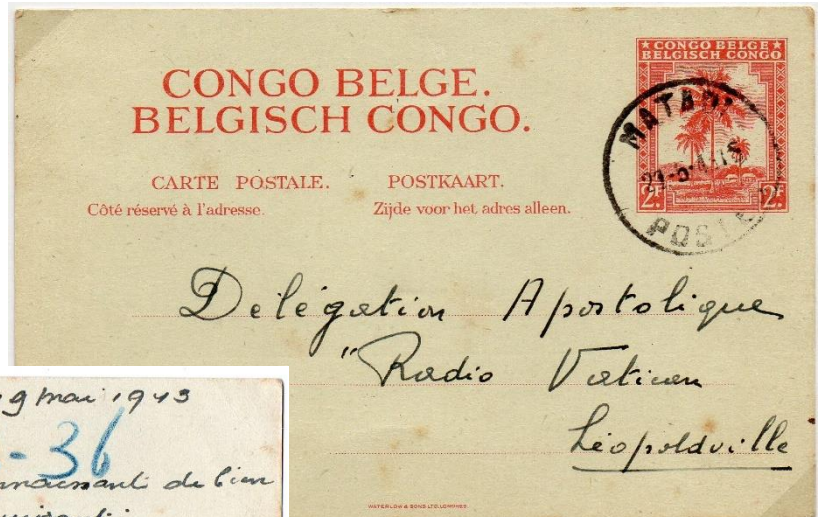 CONGO BELGE.
BELGISCH CONGO.
CARTE POSTALE. POSTKAART.
Côté réservé à l'adresse. Zijde voor het adres alleen.
★ CONGO BELGE ★
BELGISCH CONGO
2F. 2F.
MATADI
POSTE
Délégation Apostolique
"Radio Vatican
Léopoldville
WATERLOW & SONS LTD. LONDRES
9 mai 1943
- 36
de bien